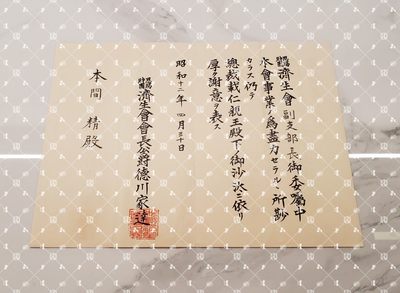 恩賜財團濟生會副支部長御委囑中
本會事業ノ爲盡力セラルヽ所尠
カラス仍テ
總裁載仁親王殿下ノ御沙汰ニ依リ
厚ク謝意ヲ表ス
昭和十二年四月三十日
恩賜財團濟生會會長公爵德川家達
本間精殿